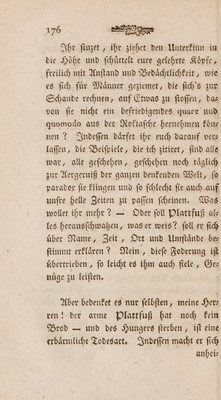 176
Ihr stuzet, ihr ziehet den Unterkinn in
die Höhe und schüttelt eure gelehrte Köpfe,
freilich mit Anstand und Bedächtlichkeit, wie
es sich für Männer geziemet, die sich's zur
Schande rechnen, auf Etwas zu stossen, da-
von sie nicht ein befriedigendes quare und
quomodo aus der Rocktasche hernehmen kön-
nen? Indessen därfet ihr euch darauf ver-
lassen, die Beispiele, die ich zitiret, sind alle
war, alle geschehen, geschehen noch täglich
zur Aergerniß der ganzen denkenden Welt, so
parador sie klingen und so schlecht sie auch auf
unsre helle Zeiten zu passen scheinen. Was
wollet ihr mehr? — Oder soll Plattfuß al-
les herausschwatzen, was er weis? soll er sich
über Name, Zeit, Ort und Umstände be-
stimmt erklären? Nein, diese Foderung ist
übertrieben, so leicht es ihm auch siele, Ge-
nüge zu leisten.
Aber bedenket es nur selbsten, meine Her-
ren! der arme Plattfuß hat noch kein
Brod — und des Hungers sterben, ist eine
erbärmliche Todesart. Indessen macht er sich
anhei-